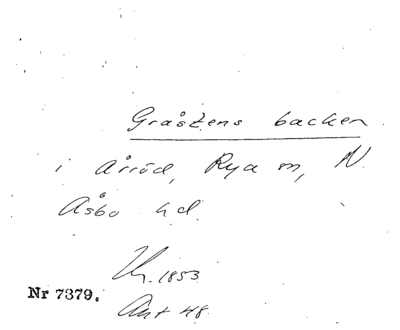 Gråstens backen
i Årröd, Rya sn, N.
Åsbo hd.
Ur. 1853
Nr 7379.
Ant 48.